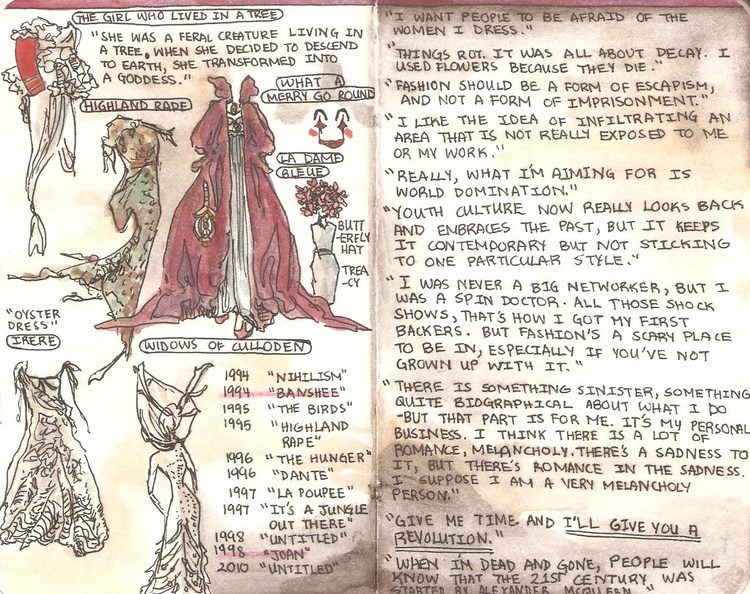 THE GIRL WHO LIVED IN A TREE
"SHE WAS A FERAL CREATURE LIVING IN
A TREE. WHEN SHE DECIDED TO DESCEND
TO EARTH, SHE TRANSFORMED INTO
A GODDESS."
WHAT A
MERRY GO ROUND
HIGHLAND RAPE
LA DAME
BLEUE
BUTT
-ERFLY
HAT
TREA-
CY
"OYSTER
DRESS"
IRERE
WIDOWS OF CULLODEN
1994 "NIHILISM"
1994 "BANSHEE"
1995 "THE BIRDS"
1995 "HIGHLAND
RAPE"
1996 "THE HUNGER"
1996 "DANTE"
1997 "LA POUPEE"
1997 "IT'S A JUNGLE
OUT THERE"
1998 "UNTITLED"
1998 "JOAN"
2010 "UNTITLED"
"I WANT PEOPLE TO BE AFRAID OF THE
WOMEN I DRESS."
"THINGS ROT. IT WAS ALL ABOUT DECAY. I
USED FLOWERS BECAUSE THEY DIE."
"FASHION SHOULD BE A FORM OF ESCAPISM,
AND NOT A FORM OF IMPRISONMENT."
"I LIKE THE IDEA OF INFILTRATING AN
AREA THAT IS NOT REALLY EXPOSED TO ME
OR MY WORK."
"REALLY, WHAT I'M AIMING FOR IS
WORLD DOMINATION."
"YOUTH CULTURE NOW REALLY LOOKS BACK
AND EMBRACES THE PAST, BUT IT KEEPS
IT CONTEMPORARY BUT NOT STICKING
TO ONE PARTICULAR STYLE."
"I WAS NEVER A BIG NETWORKER, BUT I
WAS A SPIN DOCTOR. ALL THOSE SHOCK
SHOWS, THAT'S HOW I GOT MY FIRST
BACKERS. BUT FASHION'S A SCARY PLACE
TO BE IN, ESPECIALLY IF YOU'VE NOT
GROWN UP WITH IT."
"THERE IS SOMETHING SINISTER, SOMETHING
QUITE BIOGRAPHICAL ABOUT WHAT I DO
-BUT THAT PART IS FOR ME. IT'S MY PERSONAL
BUSINESS. I THINK THERE IS A LOT OF
ROMANCE, MELANCHOLY. THERE'S A SADNESS TO
IT, BUT THERE'S ROMANCE IN THE SADNESS.
I SUPPOSE I AM A VERY MELANCHOLY
PERSON."
"GIVE ME TIME AND I'LL GIVE YOU A
REVOLUTION."
"WHEN I'M DEAD AND GONE, PEOPLE WILL
KNOW THAT THE 21ST CENTURY WAS
STARTED BY ALEXANDER MCQUEEN."